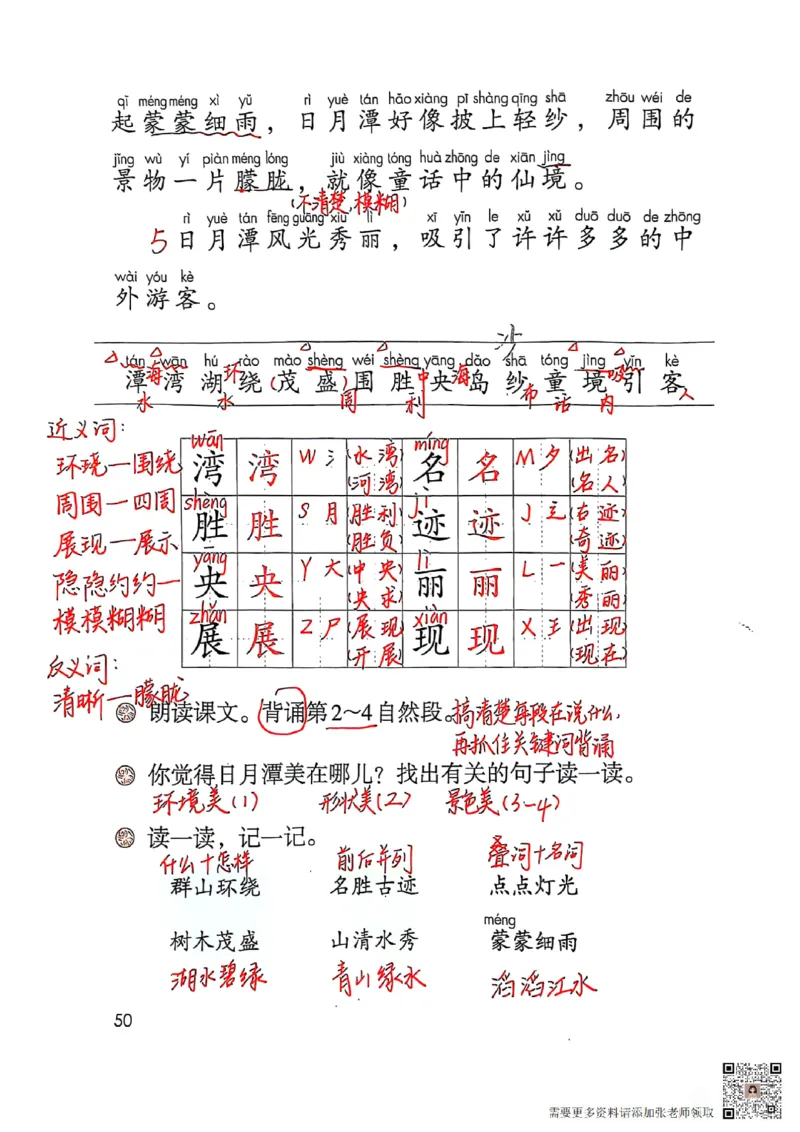 qǐ méngméng xì yǔ rì yuè tán hǎoxiàng pī shàngqīng shā zhōu wéi de
起蒙蒙细雨，日月潭好像披上轻纱，周围的
jǐng wù yí piànméng lóng jiù xiàng tóng huà zhōng de xiān jìng
景物一片朦胧，就像童话中的仙境。
(不清楚,模糊)
rì yuè tán fēng guāng xiù lì xī yǐn le xǔ xǔ duō duō de zhōng
5日月潭风光秀丽，吸引了许许多多的中
wài yóu kè
外游客。
tán wān hú rào mào shèng wéi shèng yāng dǎo shā tóng jìng yǐn kè
潭海湾湖环绕(茂盛)围胜中央海岛纱童境吸引客
水 水 周 利 布 话 内 人
近义词:
环绕—围绕
周围—四周
展现—展示
隐隐约约—
模模糊糊
反义词:
清晰—朦胧
wān míng
湾 湾 W 氵 (水湾) 名 名 M 夕 (出名)
(河湾) (名人)
shèng jì
胜 胜 S 月 (胜利) 迹 迹 J 辶 (古迹)
(胜负) (奇迹)
yāng lì
央 央 Y 大 (中央) 丽 丽 L 一 (美丽)
(央求) (秀丽)
zhǎn xiàn
展 展 Z 尸 (展现) 现 现 X 王 (出现)
(开展) (现在)
朗读课文。背诵第2~4自然段。搞清楚每段在说什么,
再抓住关键词背诵
你觉得日月潭美在哪儿？找出有关的句子读一读。
环境美(1) 形状美(2) 景色美(3-4)
读一读，记一记。
什么+怎样 前后并列 叠词+名词
群山环绕 名胜古迹 点点灯光
méng
树木茂盛 山清水秀 蒙蒙细雨
湖水碧绿 青山绿水 滔滔江水
50
需要更多资料请添加张老师领取